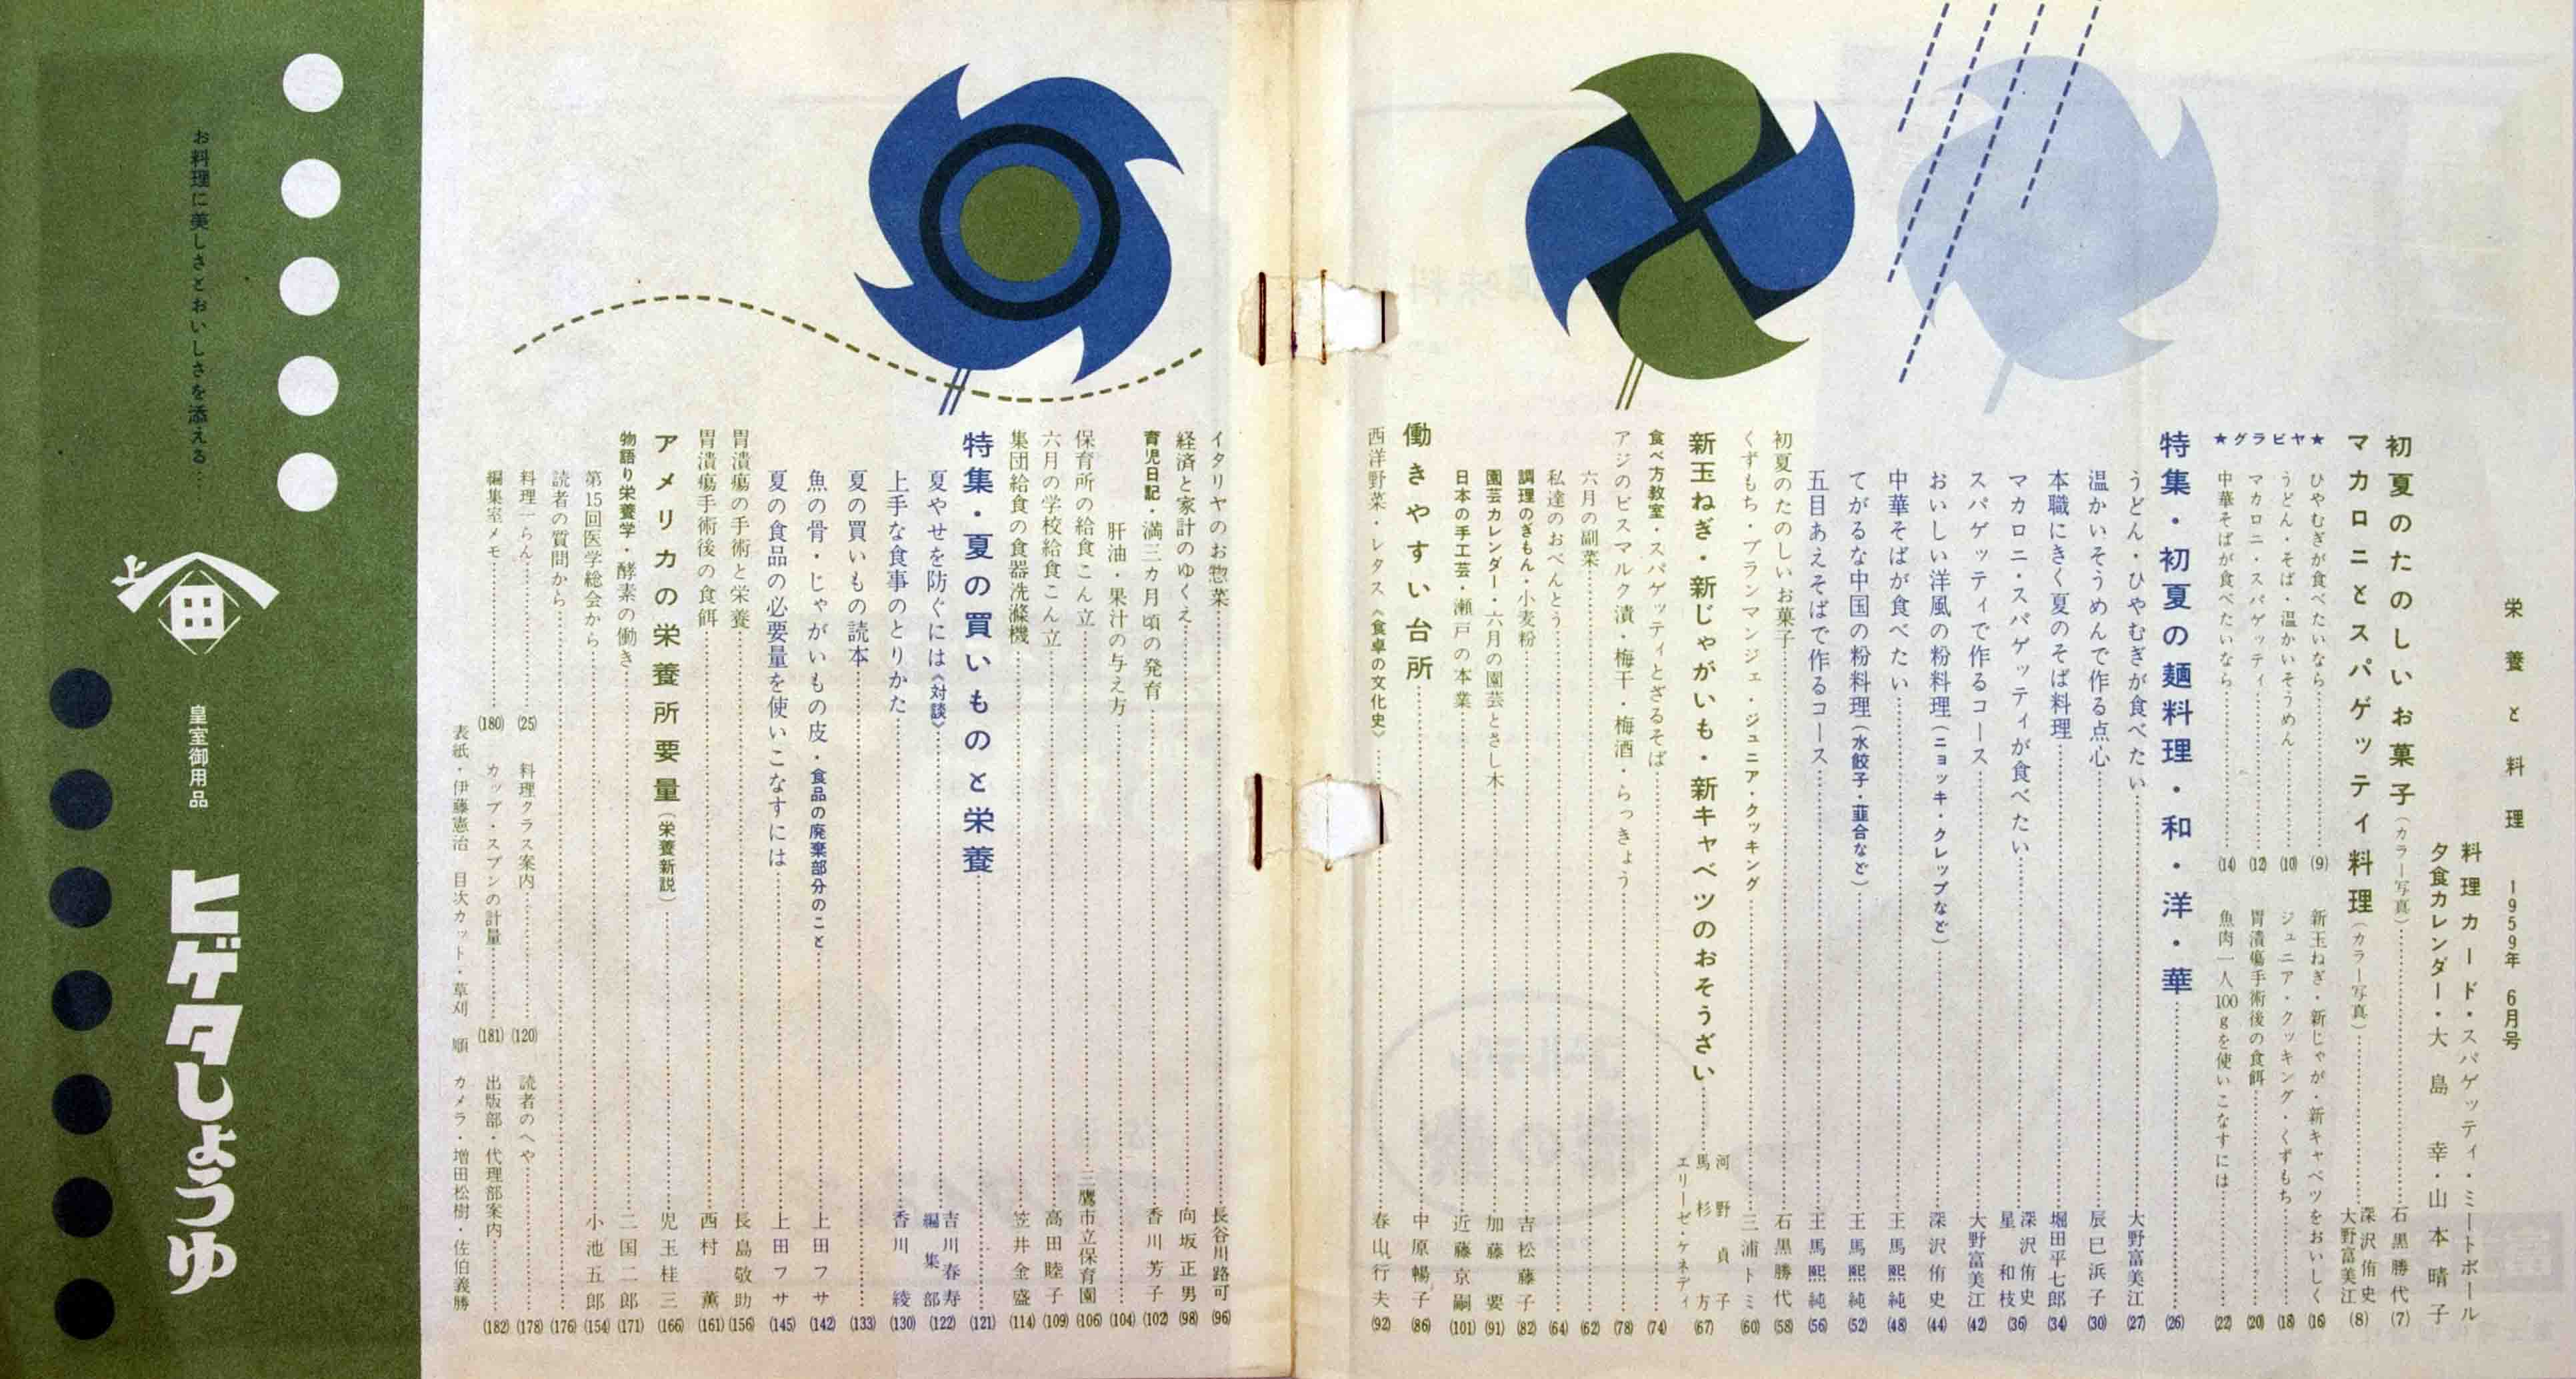 栄養と料理 1959年 6月号
料理カード・スパゲッティ・ミートボール
夕食カレンダー・大島 幸・山本晴子
初夏のたのしいお菓子(カラー写真)……石黒勝代(7)
マカロニとスパゲッティ料理(カラー写真)……深沢侑史 大野富美江(8)
★グラビヤ★
ひやむぎが食べたいなら……(9)
うどん・そば・温かいそうめん……(10)
マカロニ・スパゲッティ……(12)
中華そばが食べたいなら……(14)
新玉ねぎ・新じゃが・新キャベツをおいしく(16)
ジュニア・クッキング・くずもち……(18)
胃潰瘍手術後の食餌……(20)
魚肉一人100gを使いこなすには……(22)
特集・初夏の麺料理・和・洋・華……(26)
うどん・ひやむぎが食べたい……大野富美江(27)
温かいそうめんで作る点心……辰巳浜子(30)
本職にきく夏のそば料理……堀田平七郎(34)
マカロニ・スパゲッティが食べたい……深沢侑史 星和枝(36)
スパゲッティで作るコース……大野富美江(42)
おいしい洋風の粉料理(ニョッキ・クレップなど)……深沢侑史(44)
中華そばが食べたい……王馬熙純(48)
てがるな中国の粉料理(水餃子・韮合など)……王馬熙純(52)
五目あえそばで作るコース……王馬熙純(56)
初夏のたのしいお菓子……石黒勝代(58)
くずもち・ブランマンジェ・ジュニア・クッキング……三浦トミ(60)
新玉ねぎ・新じゃがいも・新キャベツのおそうざい……河野貞子 馬杉方 エリーゼ・ケネディ(67)
食べ方教室・スパゲッティとざるそば……(74)
アジのビスマルク漬・梅干・梅酒・らっきょう……(78)
六月の副菜……(62)
私達のおべんとう……(64)
調理のぎもん・小麦粉……吉松藤子(82)
園芸カレンダー・六月の園芸とさし木……加藤要(91)
日本の手工芸・瀬戸の本業……近藤京嗣(101)
働きやすい台所……中原暢子(86)
西洋野菜・レタス《食卓の文化史》……春山行夫(92)
イタリヤのお惣菜……長谷川路可(96)
経済と家計のゆくえ……向坂正男(98)
育児日記・満三カ月頃の発育……香川芳子(102)
肝油・果汁の与え方……(104)
保育所の給食こん立……三鷹市立保育園(106)
六月の学校給食こん立……高田睦子(109)
集団給食の食器洗滌機……笠井金盛(114)
特集・夏の買いものと栄養……(121)
夏やせを防ぐには《対談》……吉川春寿 編集部(122)
上手な食事のとりかた……香川綾(130)
夏の買いもの読本……(133)
魚の骨・じゃがいもの皮・食品の廃棄部分のこと……上田フサ(142)
夏の食品の必要量を使いこなすには……上田フサ(145)
胃潰瘍の手術と栄養……長島敬助(156)
胃潰瘍手術後の食餌……西村薫(161)
アメリカの栄養所要量(栄養新説)……児玉桂三(166)
物語り栄養学・酵素の働き……二国二郎(171)
第15回医学総会から……小池五郎(154)
読者の質問から……(176)
料理一らん……(25) 料理クラス案内……(120) 読者のへや……(178)
編集室メモ……(180) カップ・スプンの計量……(181) 出版部・代理部案内……(182)
表紙・伊藤憲治 目次カット・草刈 順 カメラ・増田松樹・佐伯義勝
お料理に美しさとおいしさを添える…
上
田
皇室御用品
ヒゲタしょうゆ